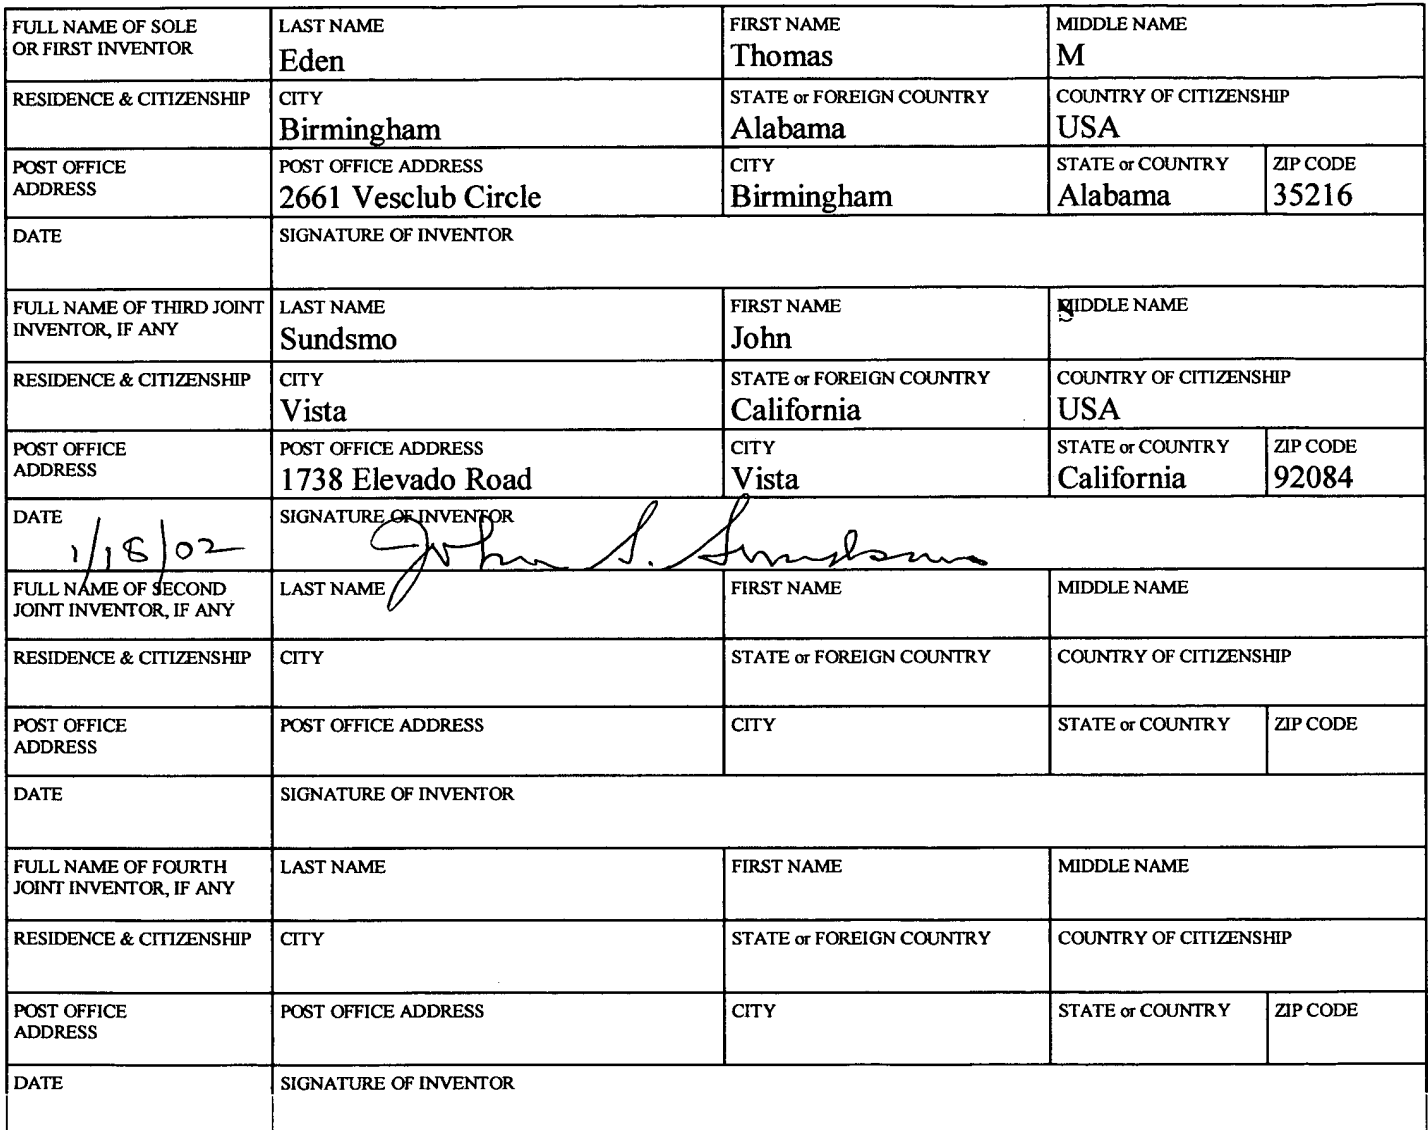 FULL NAME OF SOLE OR FIRST INVENTOR
LAST NAME
Eden
FIRST NAME
Thomas
MIDDLE NAME
M
RESIDENCE & CITIZENSHIP
CITY
Birmingham
STATE or FOREIGN COUNTRY
Alabama
COUNTRY OF CITIZENSHIP
USA
POST OFFICE
ADDRESS
POST OFFICE ADDRESS
2661 Vesclub Circle
CITY
Birmingham
STATE or COUNTRY
Alabama
ZIP CODE
35216
DATE
SIGNATURE OF INVENTOR
FULL NAME OF THIRD JOINT
INVENTOR, IF ANY
LAST NAME
Sundsmo
FIRST NAME
John
MIDDLE NAME
S
RESIDENCE & CITIZENSHIP
CITY
Vista
STATE or FOREIGN COUNTRY
California
COUNTRY OF CITIZENSHIP
USA
POST OFFICE
ADDRESS
POST OFFICE ADDRESS
1738 Elevado Road
CITY
Vista
STATE or COUNTRY
California
ZIP CODE
92084
DATE
1/18/02
SIGNATURE OF INVENTOR
John S. Sundsmo
FULL NAME OF SECOND
JOINT INVENTOR, IF ANY
LAST NAME
FIRST NAME
MIDDLE NAME
RESIDENCE & CITIZENSHIP
CITY
STATE or FOREIGN COUNTRY
COUNTRY OF CITIZENSHIP
POST OFFICE
ADDRESS
POST OFFICE ADDRESS
CITY
STATE or COUNTRY
ZIP CODE
DATE
SIGNATURE OF INVENTOR
FULL NAME OF FOURTH
JOINT INVENTOR, IF ANY
LAST NAME
FIRST NAME
MIDDLE NAME
RESIDENCE & CITIZENSHIP
CITY
STATE or FOREIGN COUNTRY
COUNTRY OF CITIZENSHIP
POST OFFICE
ADDRESS
POST OFFICE ADDRESS
CITY
STATE or COUNTRY
ZIP CODE
DATE
SIGNATURE OF INVENTOR